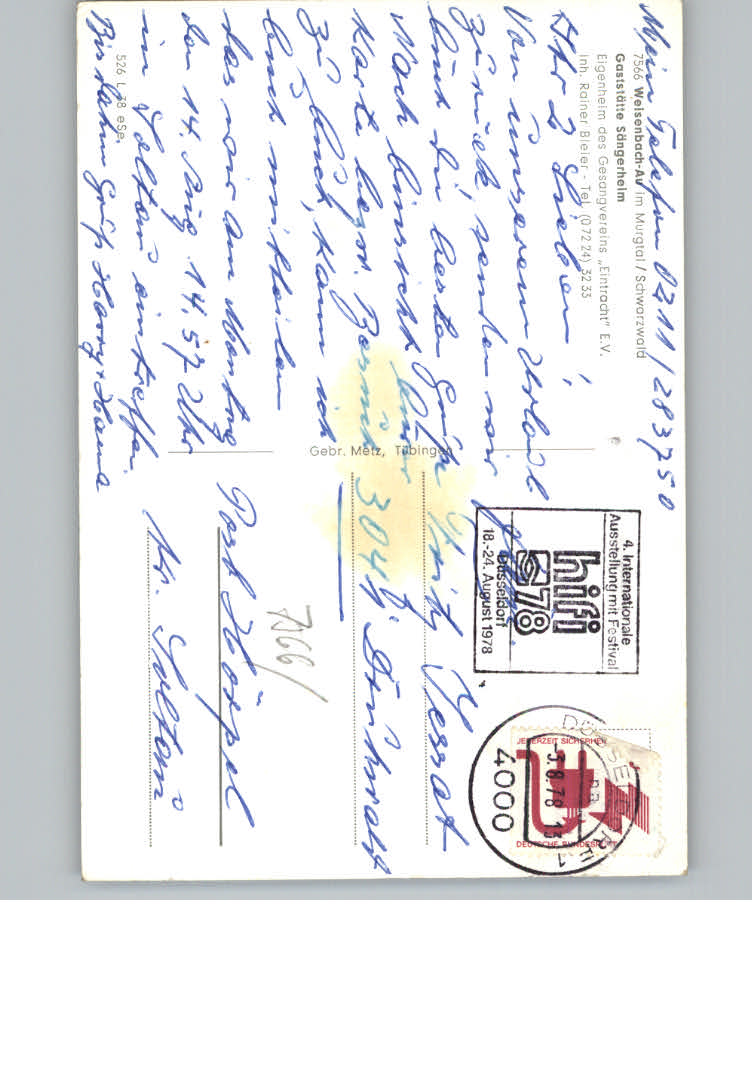 Mein Telefon 0211/283750
7566 Weisenbach-Au im Murgtal/Schwarzwald
Gaststätte Sängerheim
Eigenheim des Gesangvereins „Eintracht" E.V.
Inh. Rainer Bleier - Tel. (07224) 3233
Ihr 2 Lieben!
Von unserem Urlaub
zurück, senden wir
Euch die besten Grüße
Nach Rücksicht
Karte bezw.
zu Euch, kann ich
Euch mitteilen
das wir am Montag
den 14. Aug 14,57 Uhr
in Soltau eintreffen.
Bis dahin Grüß Harry + Hana
526 L 78 eSe
Gebr. Metz, Tübingen
4. Internationale
Ausstellung mit Festival
hifi
78
Düsseldorf
18.-24. August 1978
DÜSSELDORF
-3.8.78-13
4000
JEDERZEIT SICHERHEIT
DEUTSCHE BUNDESPOST
Fritz Jessat
3041
Post Hötzel
7566/
Kr. Soltau